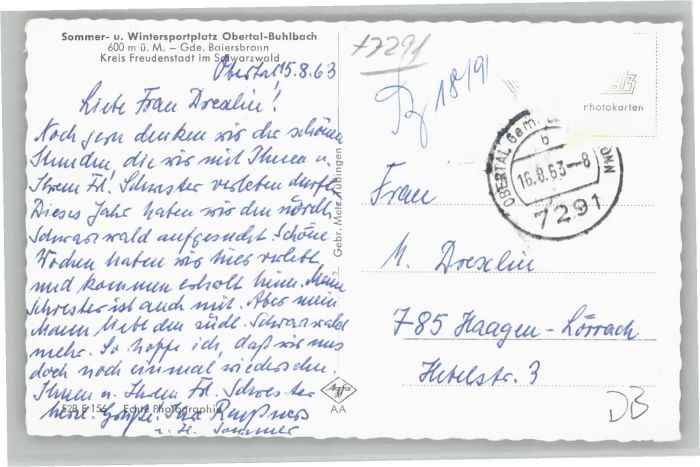 Sommer- u. Wintersportplatz Obertal-Buhlbach
600 m ü. M. – Gde. Baiersbronn
Kreis Freudenstadt im Schwarzwald
Obertal 15.8.63
Liebe Frau Drexlin!
Noch gern denken wir der schönen
Stunden, die wir mit Ihnen u.
Ihrem Frl. Schwester verleben durften.
Dieses Jahr haben wir den nördl.
Schwarzwald aufgesucht. Schöne
Wochen haben wir hier verlebt
und kommen erholt heim. Meine
Schwester ist auch mit. Aber mein
Mann liebt den südl. Schwarzwald
mehr. So hoffe ich, daß wir uns
doch noch einmal wiedersehen.
Ihnen u. Ihrem Frl. Schwester
herzl. Grüße. Ihre
u. H. Sommer
528 E 156 Echte Photographie
Gebr. Metz, Tübingen
Agfa
AA
+7291
18/91
Photokarten
OBERTAL Gem.
b
16.8.63-8
7291
Frau
M. Drexlin
785 Haagen-Lörrach
Hebelstr. 3
DB